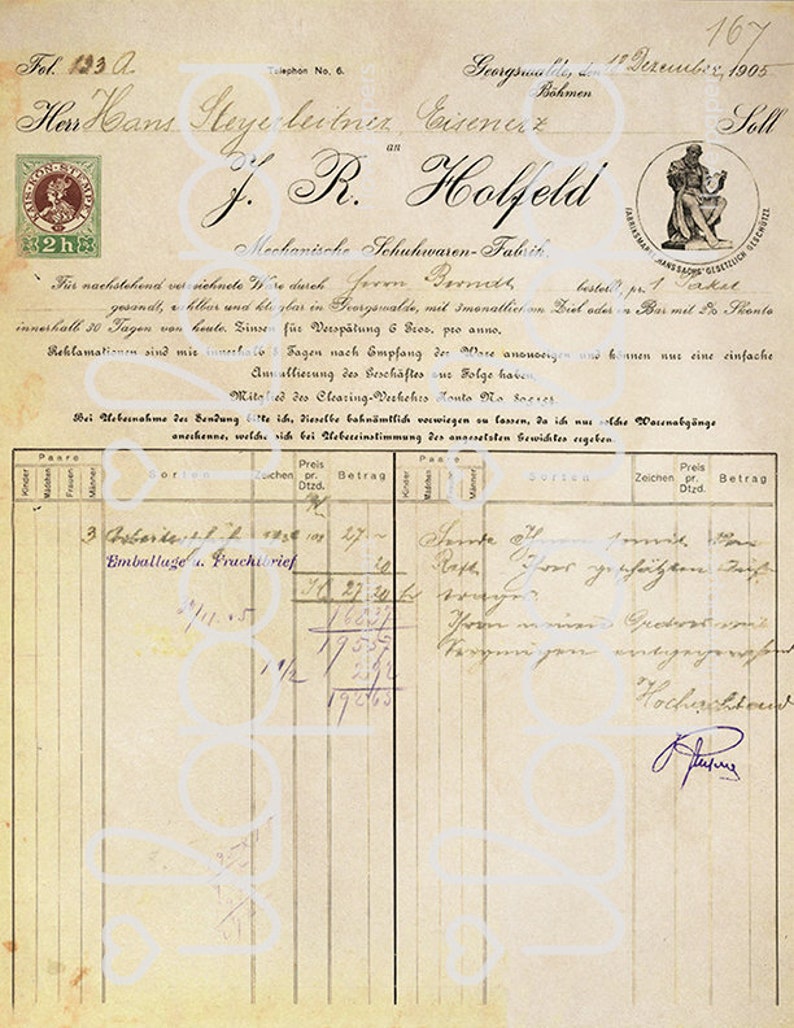 167
Fol. 193 A Telephon No. 6. Georgswalde, den 18 Dezember 1905
Böhmen
Herr Hans Steyerleitner, Eisenerz Soll
an
J. R. Holfeld
KAIS·KÖN·STEMPEL
2 h
FABRIKSMARKE „HANS SACHS“ GESETZLICH GESCHÜTZT
Mechanische Schuhwaren-Fabrik.
Für nachstehend verzeichnete Ware durch Herrn Berndt bestellt, pr. 1 Paket
gesandt, zahlbar und klagbar in Georgswalde, mit 3monatlichem Ziel oder in Bar mit 2% Skonto
innerhalb 30 Tagen von heute. Zinsen für Verspätung 6 Proz. pro anno.
Reklamationen sind mir innerhalb 8 Tagen nach Empfang der Ware anzuzeigen und können nur eine einfache
Annullierung des Geschäftes zur Folge haben.
Mitglied des Clearing-Verkehrs Konto No.
Bei Uebernahme der Sendung bitte ich, dieselbe bahnämtlich verwiegen zu lassen, da ich nur solche Warenabgänge
anerkenne, welche sich bei Uebereinstimmung des angesetzten Gewichtes ergeben.
Paare Sorten Zeichen Preis pr. Dtzd. Betrag Paare Sorten Zeichen Preis pr. Dtzd. Betrag
Kinder Mädchen Frauen Männer Kinder Mädchen Frauen Männer
3 108 27 – Sende Ihnen somit den
Emballage u. Frachtbrief 20 Rest Ihres geschätzten Auf-
K 27 20 h trages.
16837 Ihren neuen Ordres mit
19557 Vergnügen entgegensehend
1 1/2 292
19265 Hochachtend